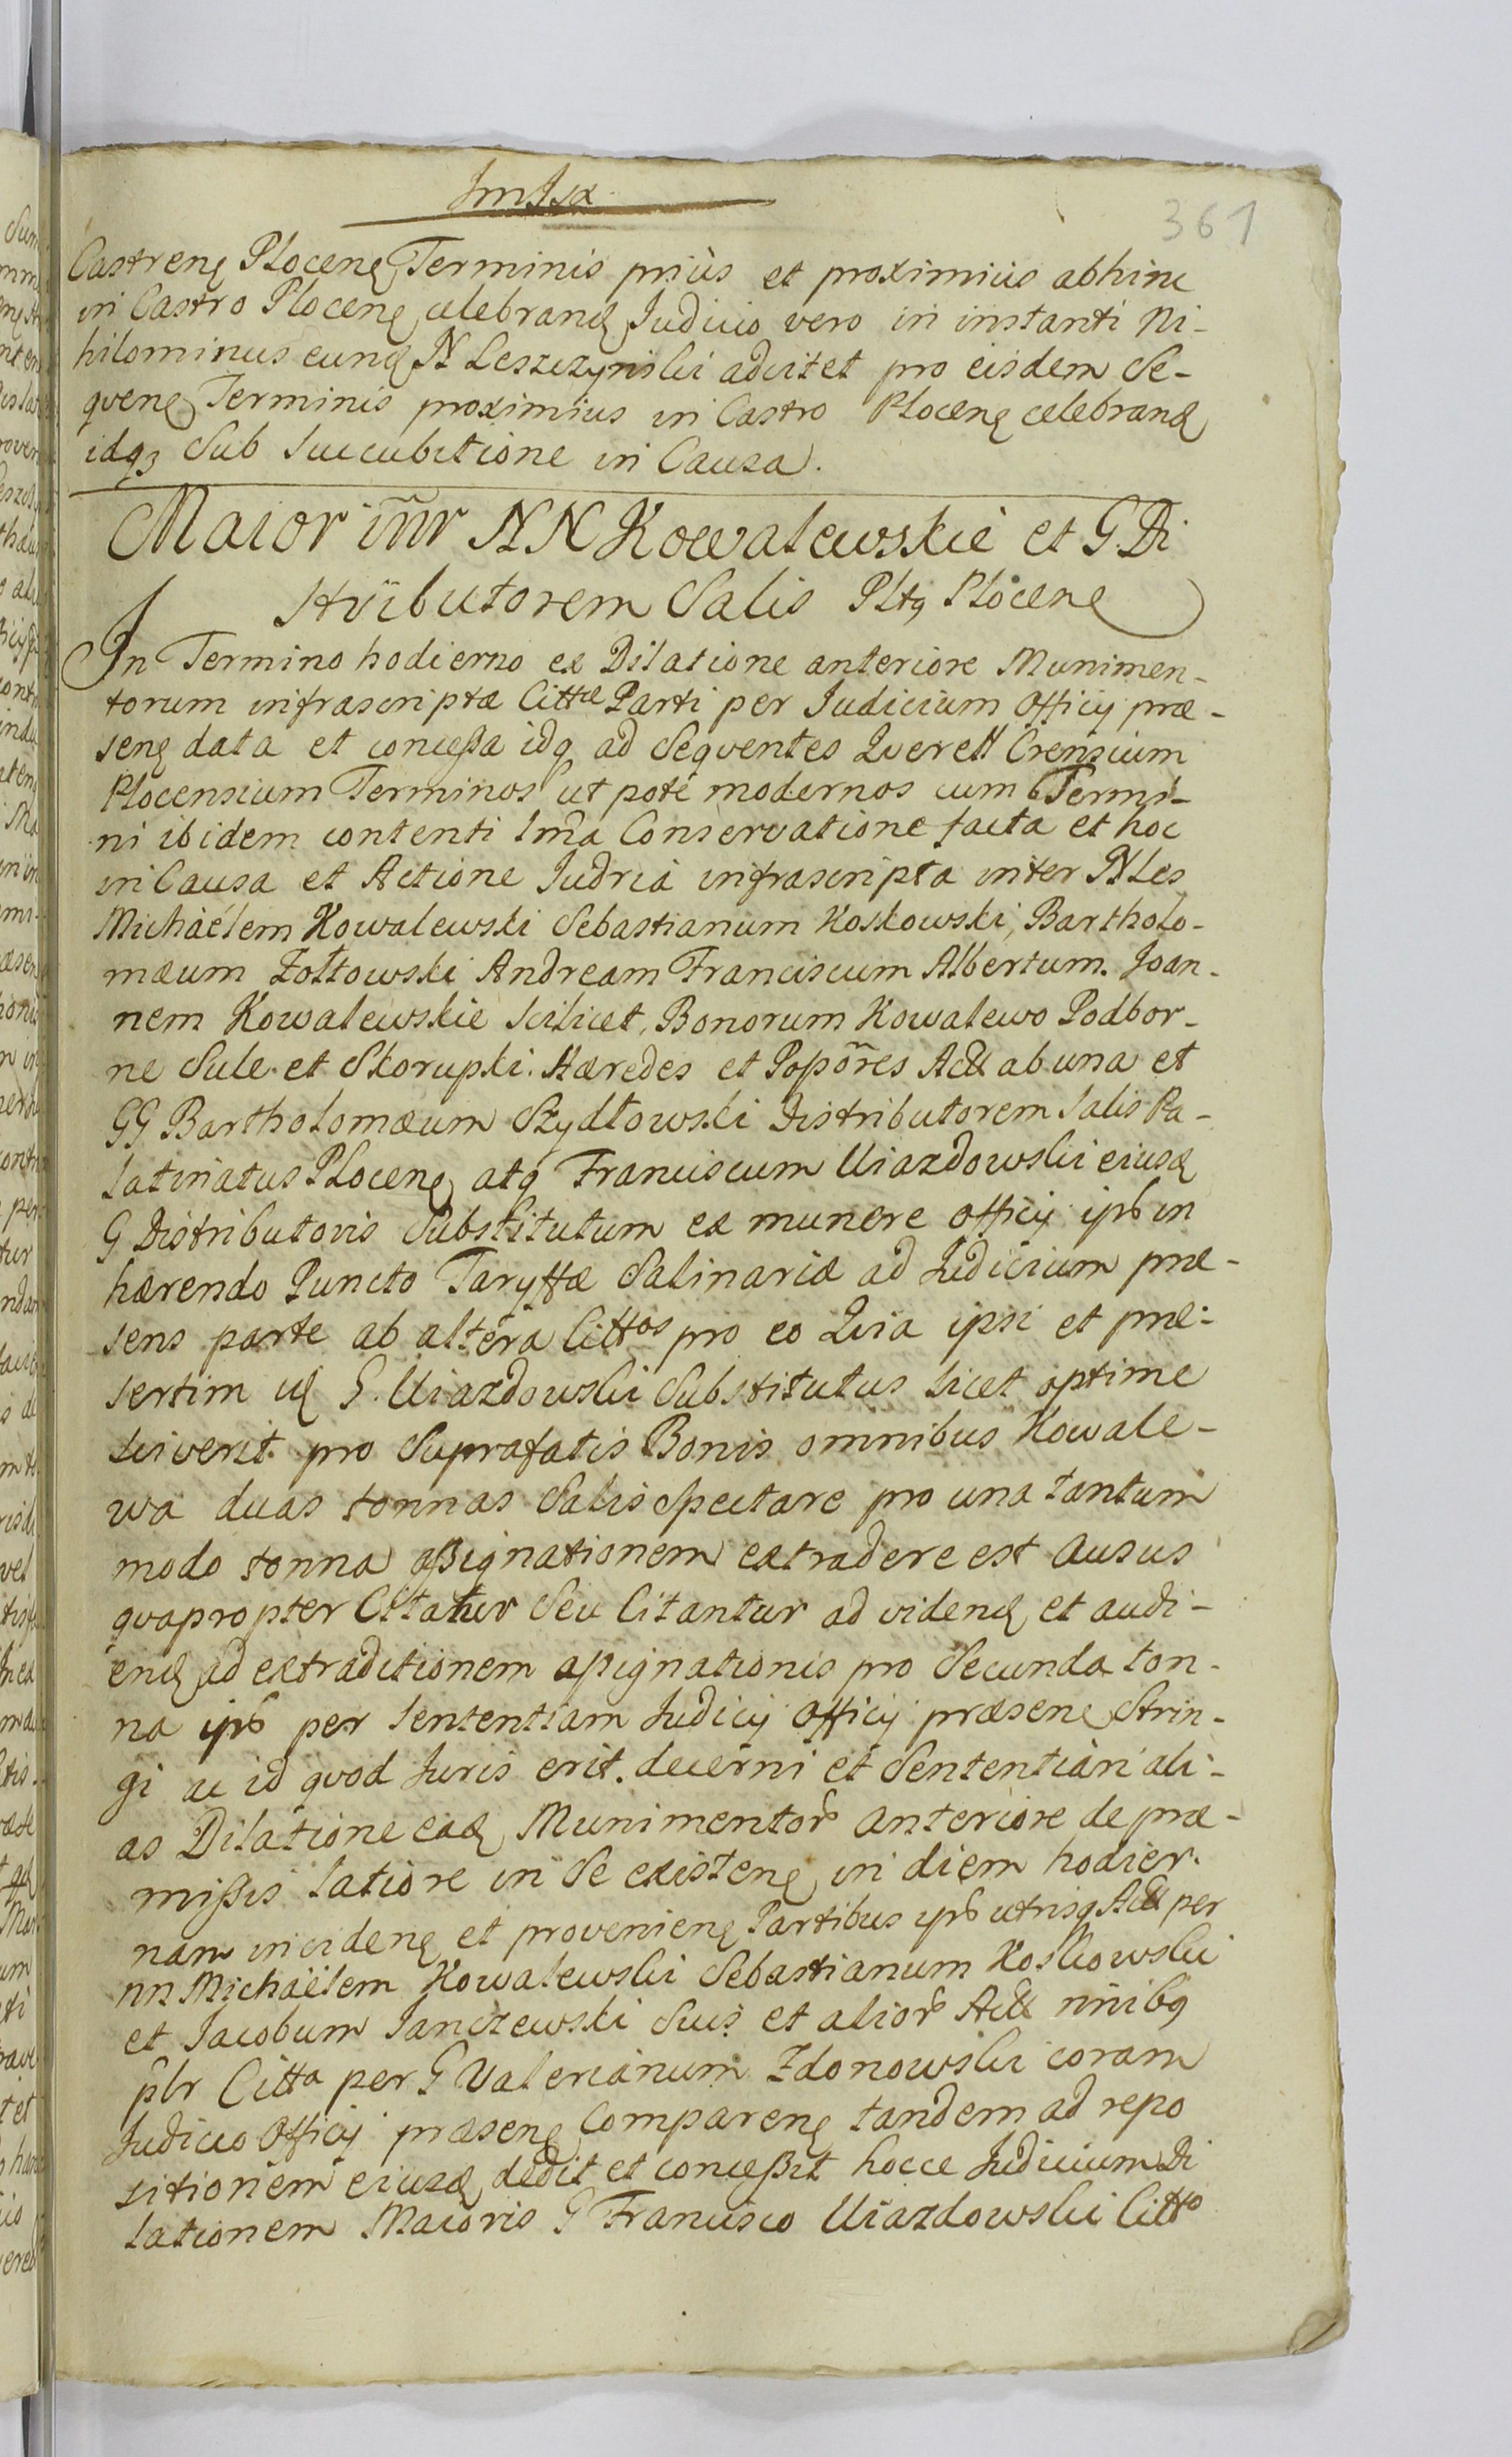 361
Castren Plocen Terminis prius et proximius abhinc
in Castro Plocen celebrand Judicio vero in instanti Ni-
hilominus eund N Leszczynski adcitet pro eisdem Se-
quen Terminis proximius in Castro Plocen celebrand
idq3 Sub Succubitione in Causa.
Maior inr NN Kowalewskie et G Di
stributorem Salis Pltq Plocene
In Termino hodierno ex Dilatione anteriore Munimen-
torum infrascriptæ Cittæ Parti per Judicium Officij præ-
sen data et conceßa idq ad Sequentes Querell Crensium
Plocensium Terminos ut poté modernos cum Termi-
ni ibidem contenti Ima Conservatione facta et hoc
in Causa et Actione Judria infrascripta inter NLes
Michaélem Kowalewski Sebastianum Koskowski, Bartholo-
mæum Zołtowski Andream Franciscum Albertum. Joan-
nem Kowalewskie scilicet, Bonorum Kowalewo Podbor-
ne Sule. et Skorupki. Hæredes et Popores Act ab una et
GG Bartholomæum Szydłowski Distributorem Salis Pa-
latinatus Plocen atq Franciscum Uiazdowski eiusd
G Distributoris Substitutum ex munere officij ips in
hærendo Puncto Taryffæ Salinariæ ad Judicium præ-
sens parte ab altera Cittos pro eo Quia ipsi et præ-
sertim id G. Uiazdowski Substitutus licet optime
sciverit pro Suprafatis Bonis omnibus Kowale-
wa duas tonnas Salis Spectare pro una tantum
modo tonna aßignationem extradere est ausus
qvapropter Citatur Seu Citantur ad videnđ et audi-
end ad extraditionem aßignationis pro Secunda ton-
na ips per sententiam Judicij Officij præsen Strin-
gi ac id qvod Juris erit. decerni et Sententiari ali-
as Dilatione ead Munimentor anteriore de præ-
mißis latiore in Se existen in diem hodier-
nam inciden et provenien Partibus ips utrisq Act per
nn Michaëlem Kowalewski Sebastianum Koskowski
et Jacobum Janczewski Suis et alior Act nnibq
plr Citta per G Valerianum Zdonowski coram
Judicio Officij præsen Comparen tandem ad repo
sitionem eiusd dedit et conceßit hocce Judicium Di
lationem Maioris G Francisco Uiazdowski Citto